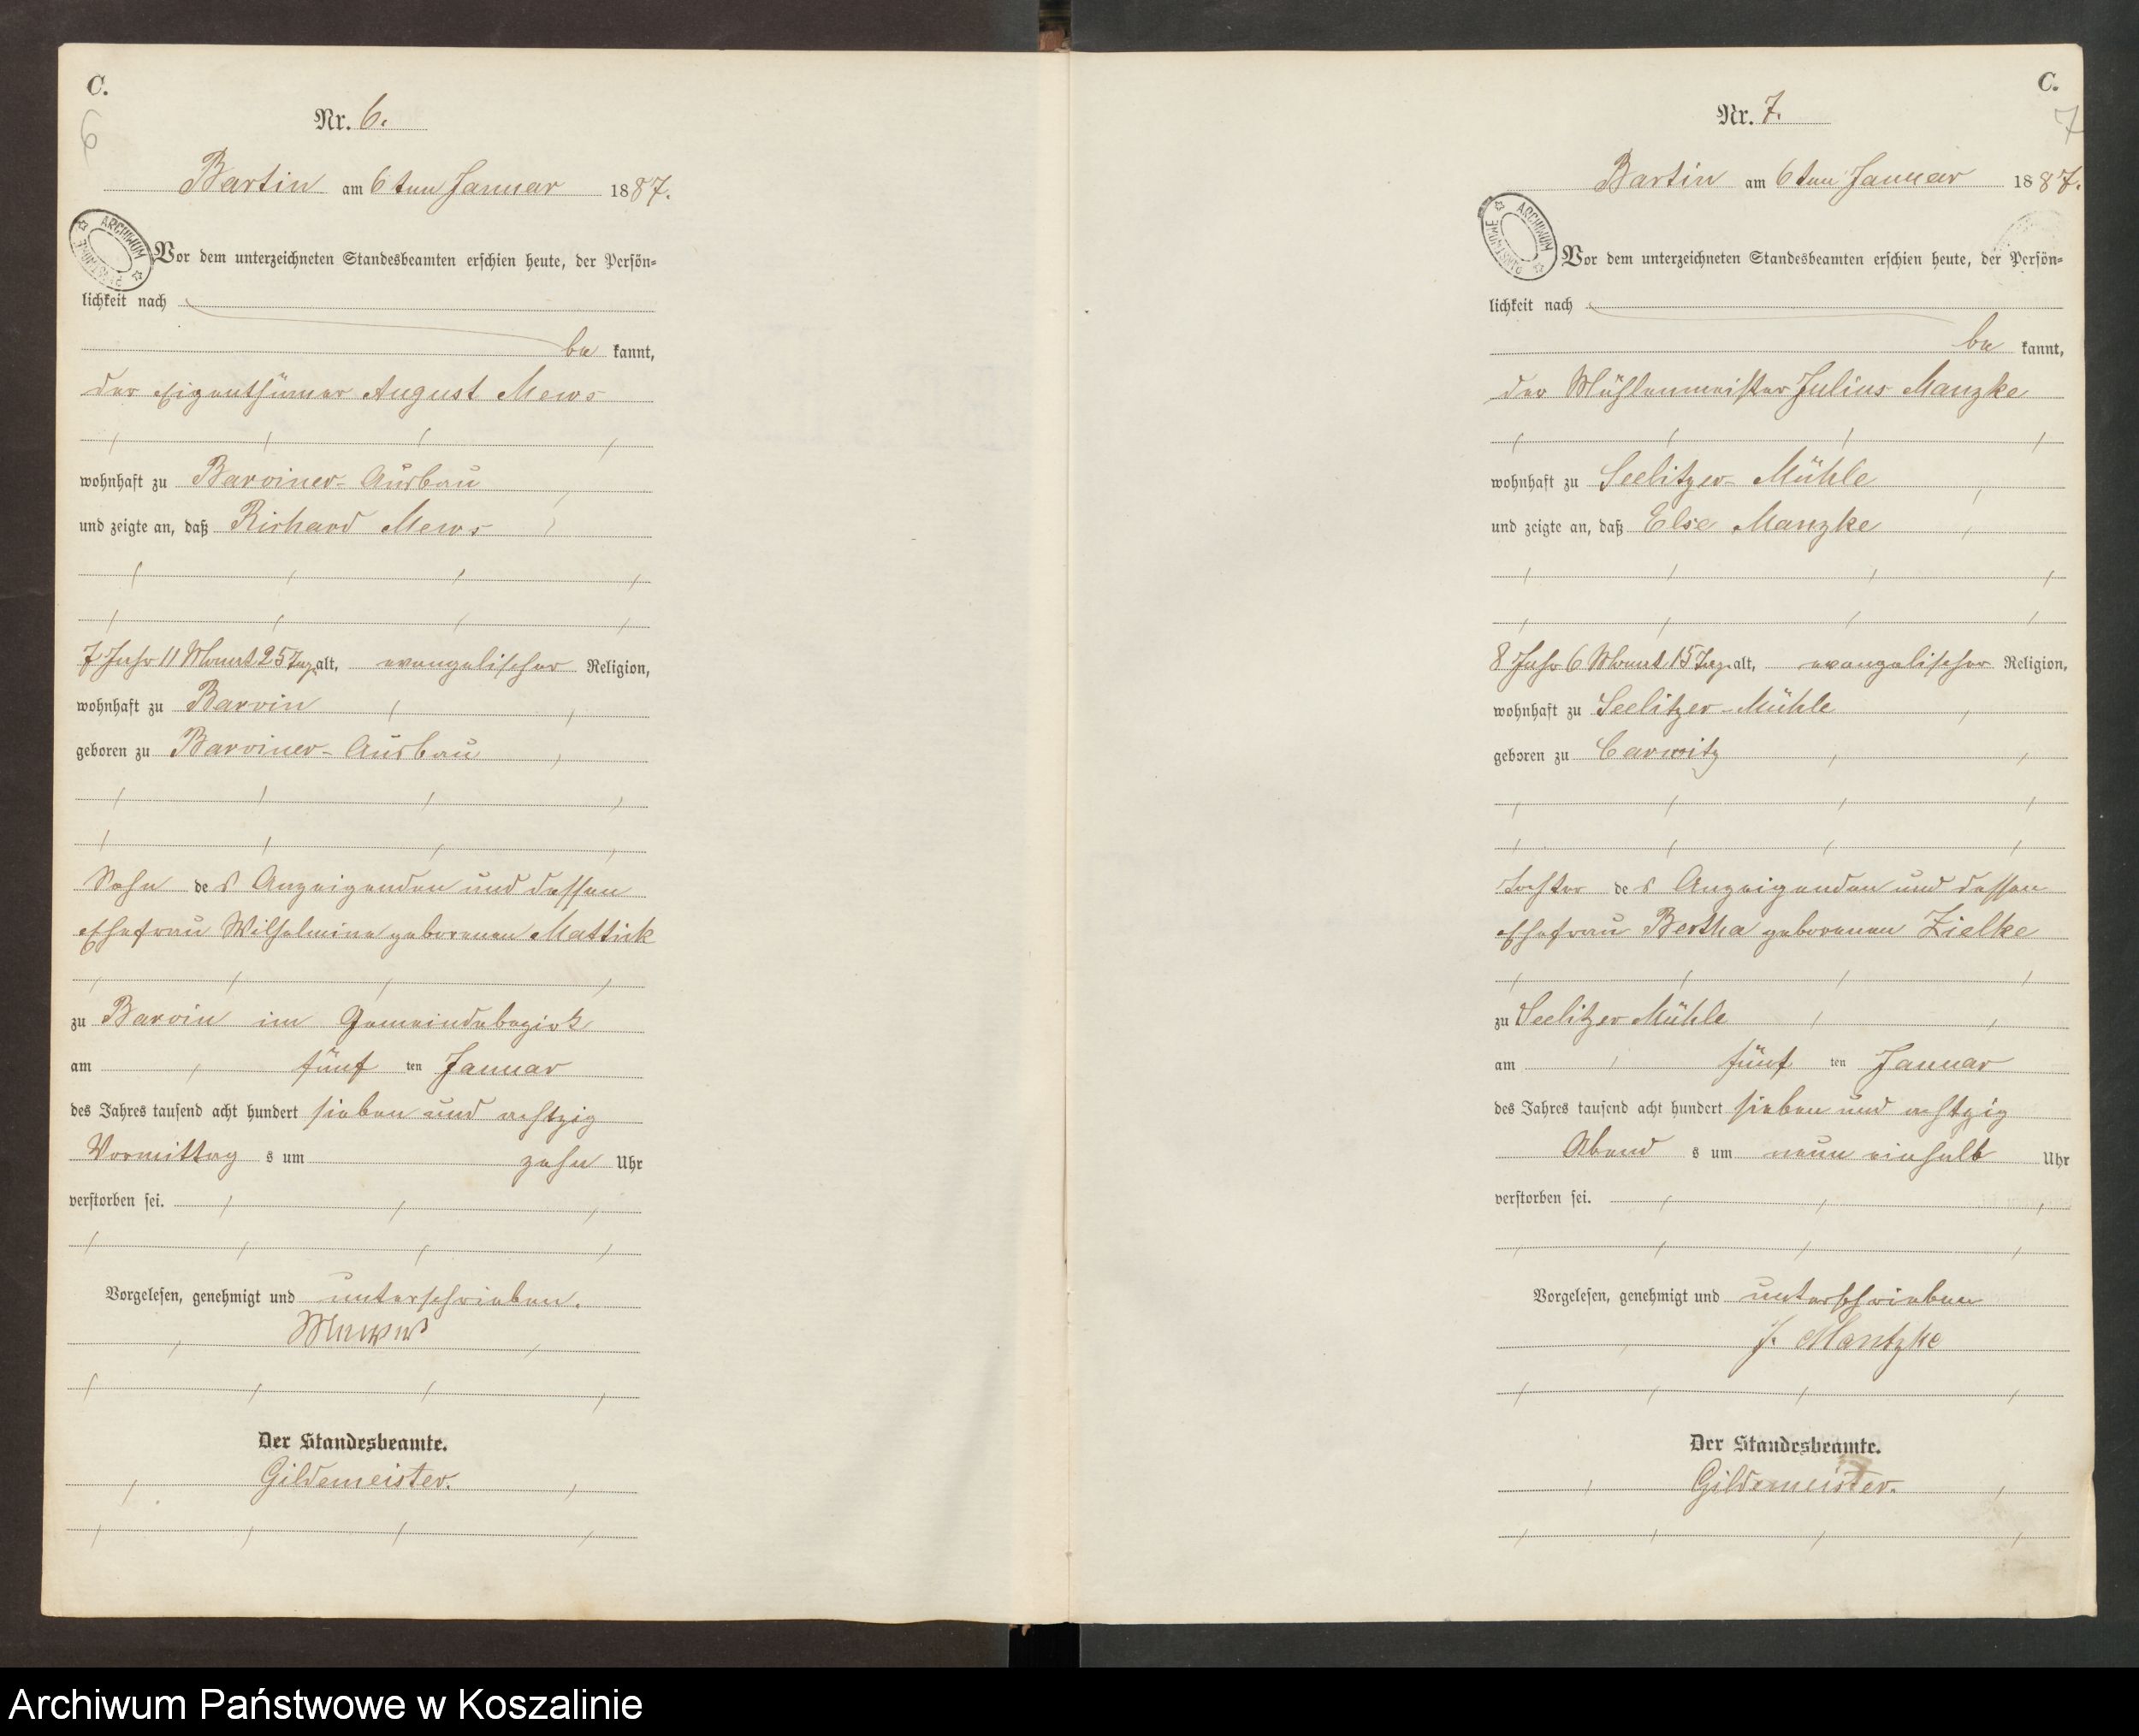 C.
6
Nr. 6.
Bartin am 6ten Januar 1887.
ARCHIWUM PAŃSTWOWE
Vor dem unterzeichneten Standesbeamten erschien heute, der Persön-
lichkeit nach
be kannt,
der Eigenthümer August Mews
wohnhaft zu Barviner-Ausbau
und zeigte an, daß Richard Mews
7 Jahr 11 Monat 25 Tag alt, evangelischer Religion,
wohnhaft zu Barvin
geboren zu Barviner-Ausbau
Sohn des Anzeigenden und dessen
Ehefrau Wilhelmine geborenen Mattick
zu Barvin im Gemeindebezirk
am fünf ten Januar
des Jahres tausend acht hundert sieben und achtzig
Vormittag s um zehn Uhr
verstorben sei.
Vorgelesen, genehmigt und unterschrieben.
Der Standesbeamte.
Gildemeister.
C.
7
Nr. 7.
Bartin am 6ten Januar 1887.
ARCHIWUM PAŃSTWOWE
Vor dem unterzeichneten Standesbeamten erschien heute, der Persön-
lichkeit nach
be kannt,
der Mühlenmeister Julius Manzke
wohnhaft zu Seelitzer-Mühle
und zeigte an, daß Else Manzke
8 Jahr 6 Monat 15 Tag alt, evangelischer Religion,
wohnhaft zu Seelitzer-Mühle
geboren zu Carwitz
Tochter des Anzeigenden und dessen
Ehefrau Bertha geborenen Zielke
zu Seelitzer Mühle
am fünf ten Januar
des Jahres tausend acht hundert sieben und achtzig
Abend s um neun einhalb Uhr
verstorben sei.
Vorgelesen, genehmigt und unterschrieben
J. Mantzke
Der Standesbeamte.
Gildemeister.
Archiwum Państwowe w Koszalinie